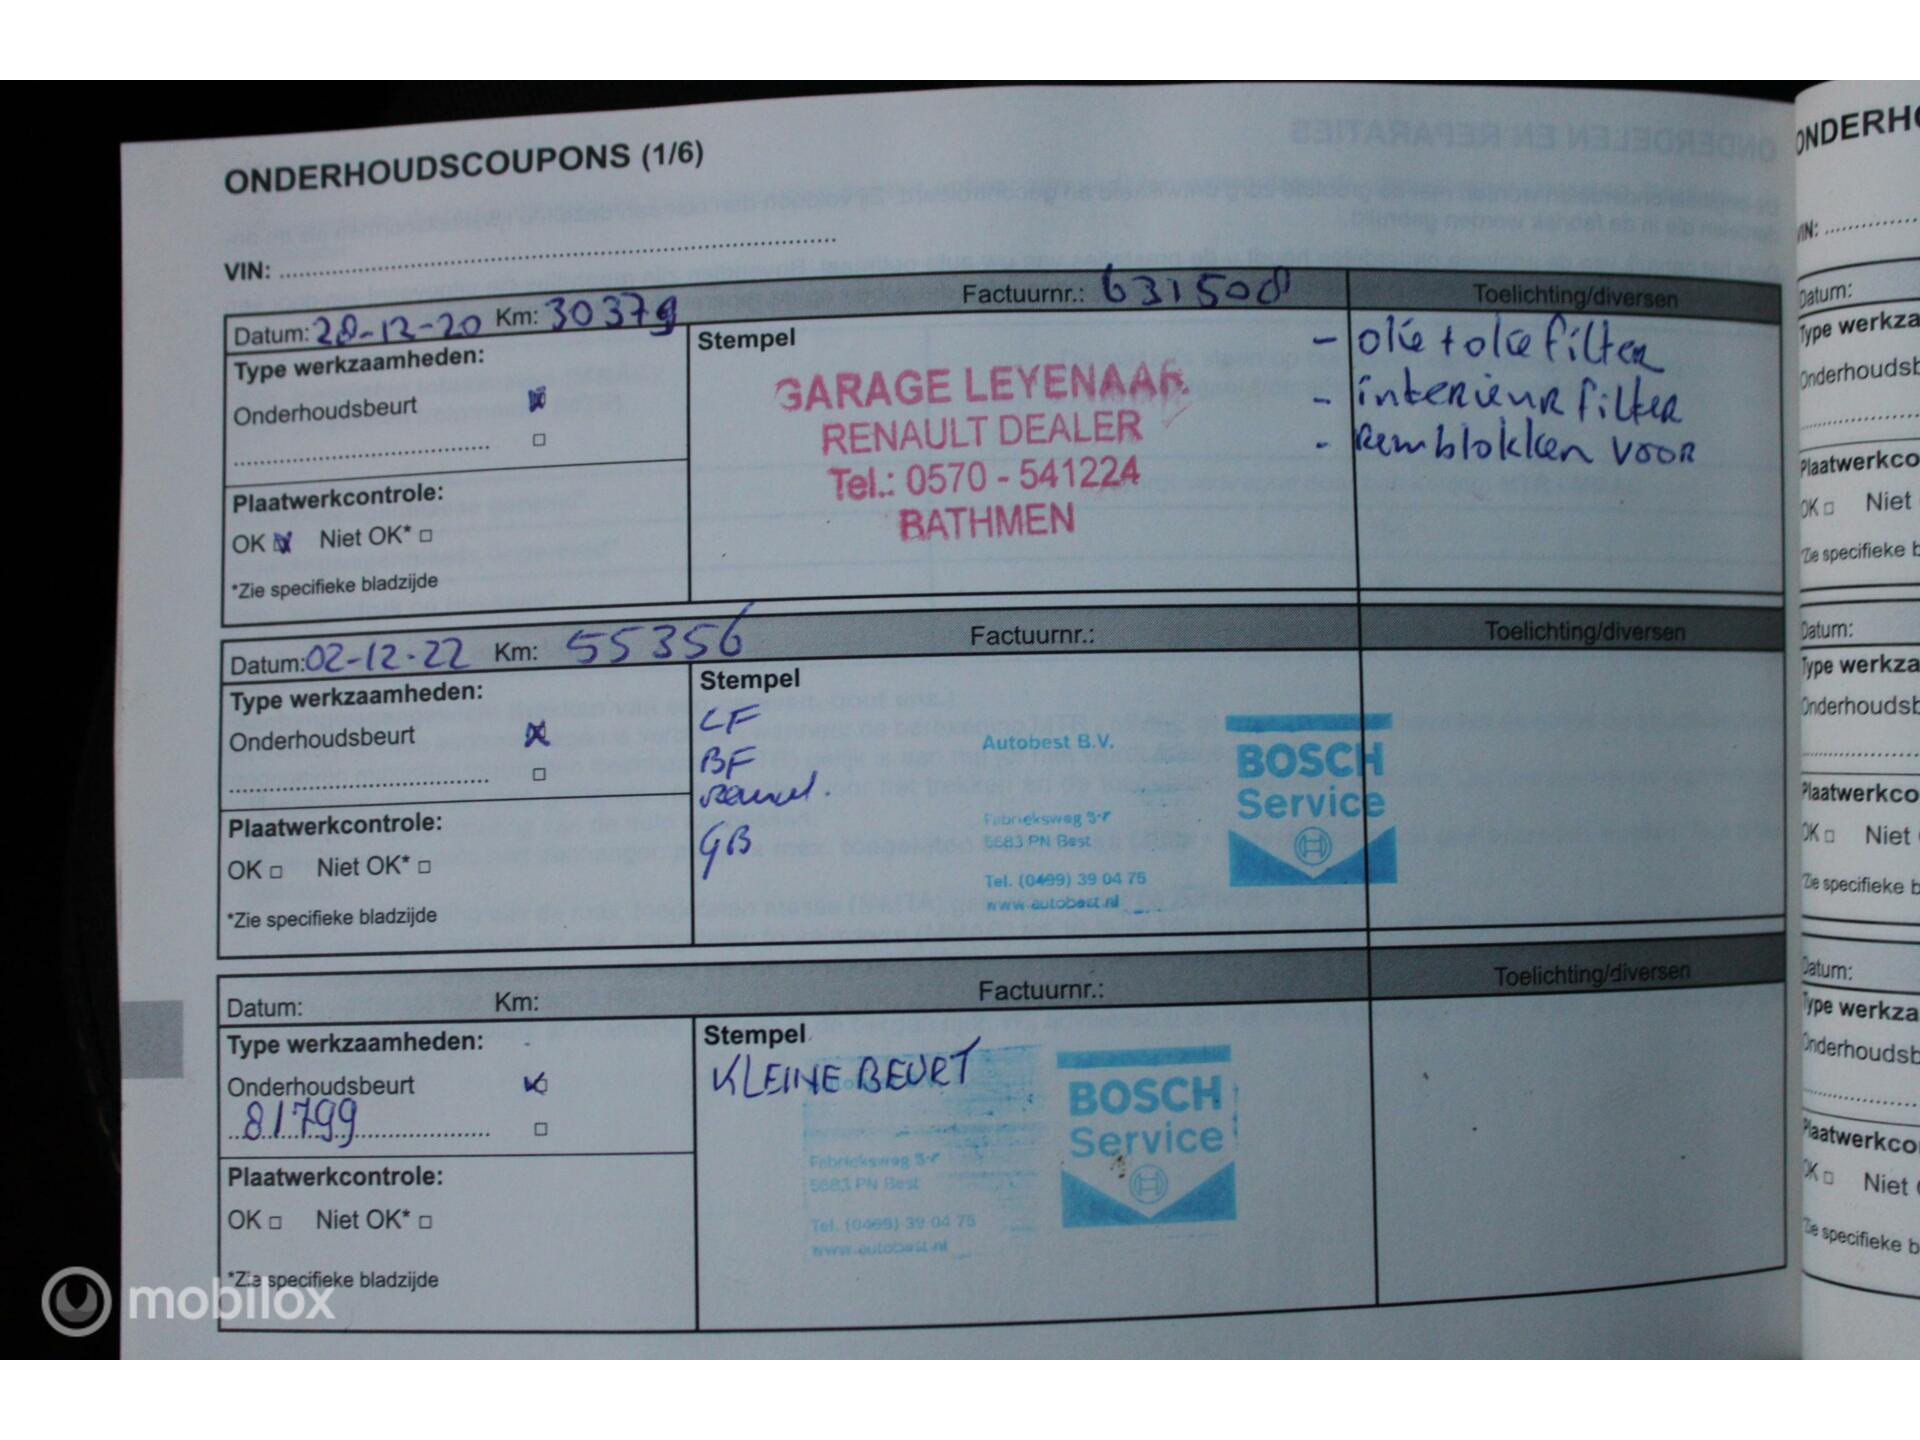 ONDERHOUDSCOUPONS (1/6)
VIN:
Datum: 28-12-20 Km: 30379 Factuurnr.: 631508 Toelichting/diversen
Type werkzaamheden:
Onderhoudsbeurt
Plaatwerkcontrole:
OK Niet OK*
*Zie specifieke bladzijde
Stempel
GARAGE LEYENAAR
RENAULT DEALER
Tel.: 0570 - 541224
BATHMEN
- olie + oliefilter
- interieurfilter
- Remblokken voor
Datum: 02-12-22 Km: 55356 Factuurnr.: Toelichting/diversen
Type werkzaamheden:
Onderhoudsbeurt
Plaatwerkcontrole:
OK Niet OK*
*Zie specifieke bladzijde
Stempel
LF
BF
GB
Autobest B.V.
Fabrieksweg
5683 PN Best
Tel. (0499) 39 04 75
www.autobest.nl
BOSCH
Service
Datum: Km: Factuurnr.: Toelichting/diversen
Type werkzaamheden:
Onderhoudsbeurt
81799
Plaatwerkcontrole:
OK Niet OK*
*Zie specifieke bladzijde
Stempel
KLEINE BEURT
Fabrieksweg
5683 PN Best
Tel. (0499) 39 04 75
www.autobest.nl
BOSCH
Service
mobilox
ONDERHO
VIN:
Datum:
Type werkza
Onderhoudsb
Plaatwerkco
OK Niet
*Zie specifieke b
Datum:
Type werkza
Onderhoudsb
Plaatwerkco
OK Niet
*Zie specifieke b
Datum:
Type werkza
Onderhoudsb
Plaatwerkco
OK Niet
*Zie specifieke b